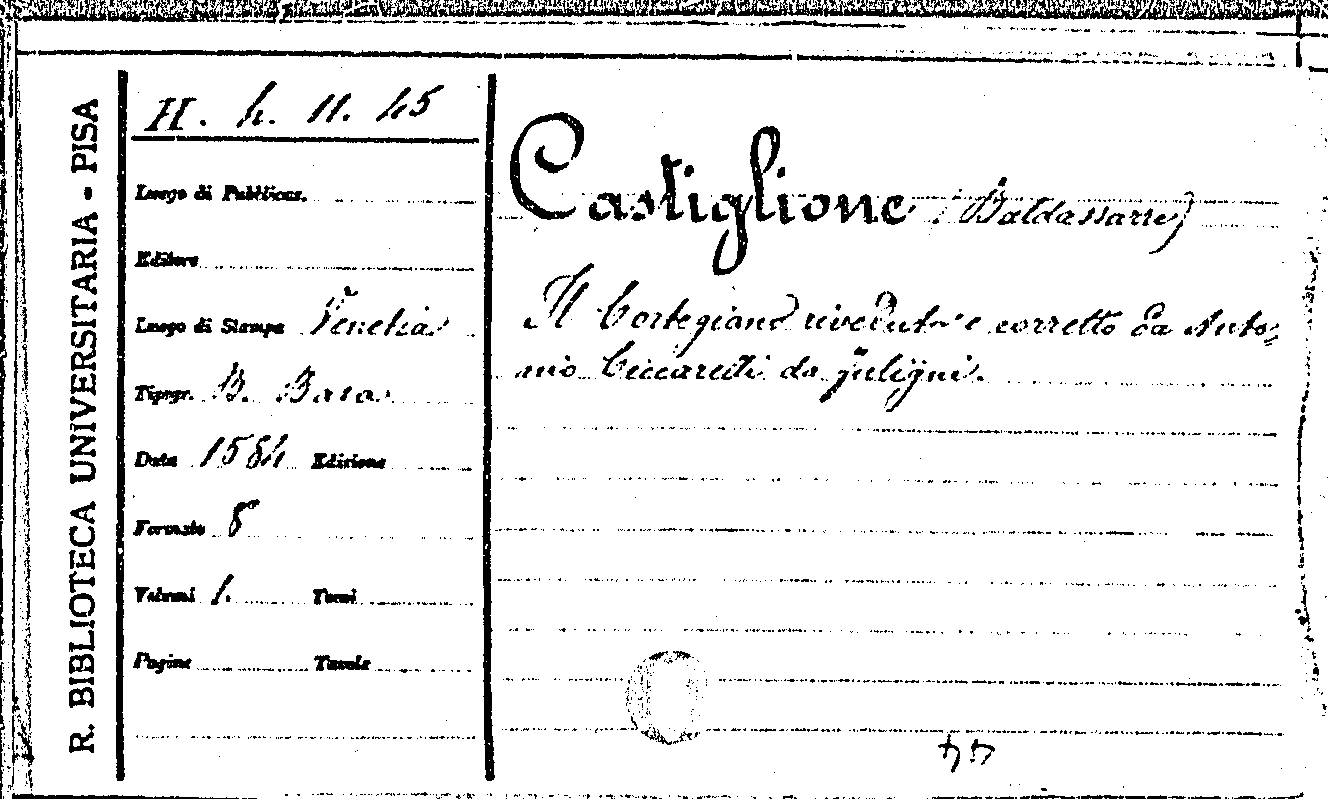 R. BIBLIOTECA UNIVERSITARIA - PISA
H. h. 11. 45
Luogo di Pubblicaz.
Editore
Luogo di Stampa Venetia
Tipogr. B. Basa
Data 1584 Edizione
Formato 8
Volumi 1. Tomi
Pagine Tavole
Castiglione (Baldassarre)
Il Cortegiano riveduto e corretto da Anto-
nio Ciccarelli da Fuligni.